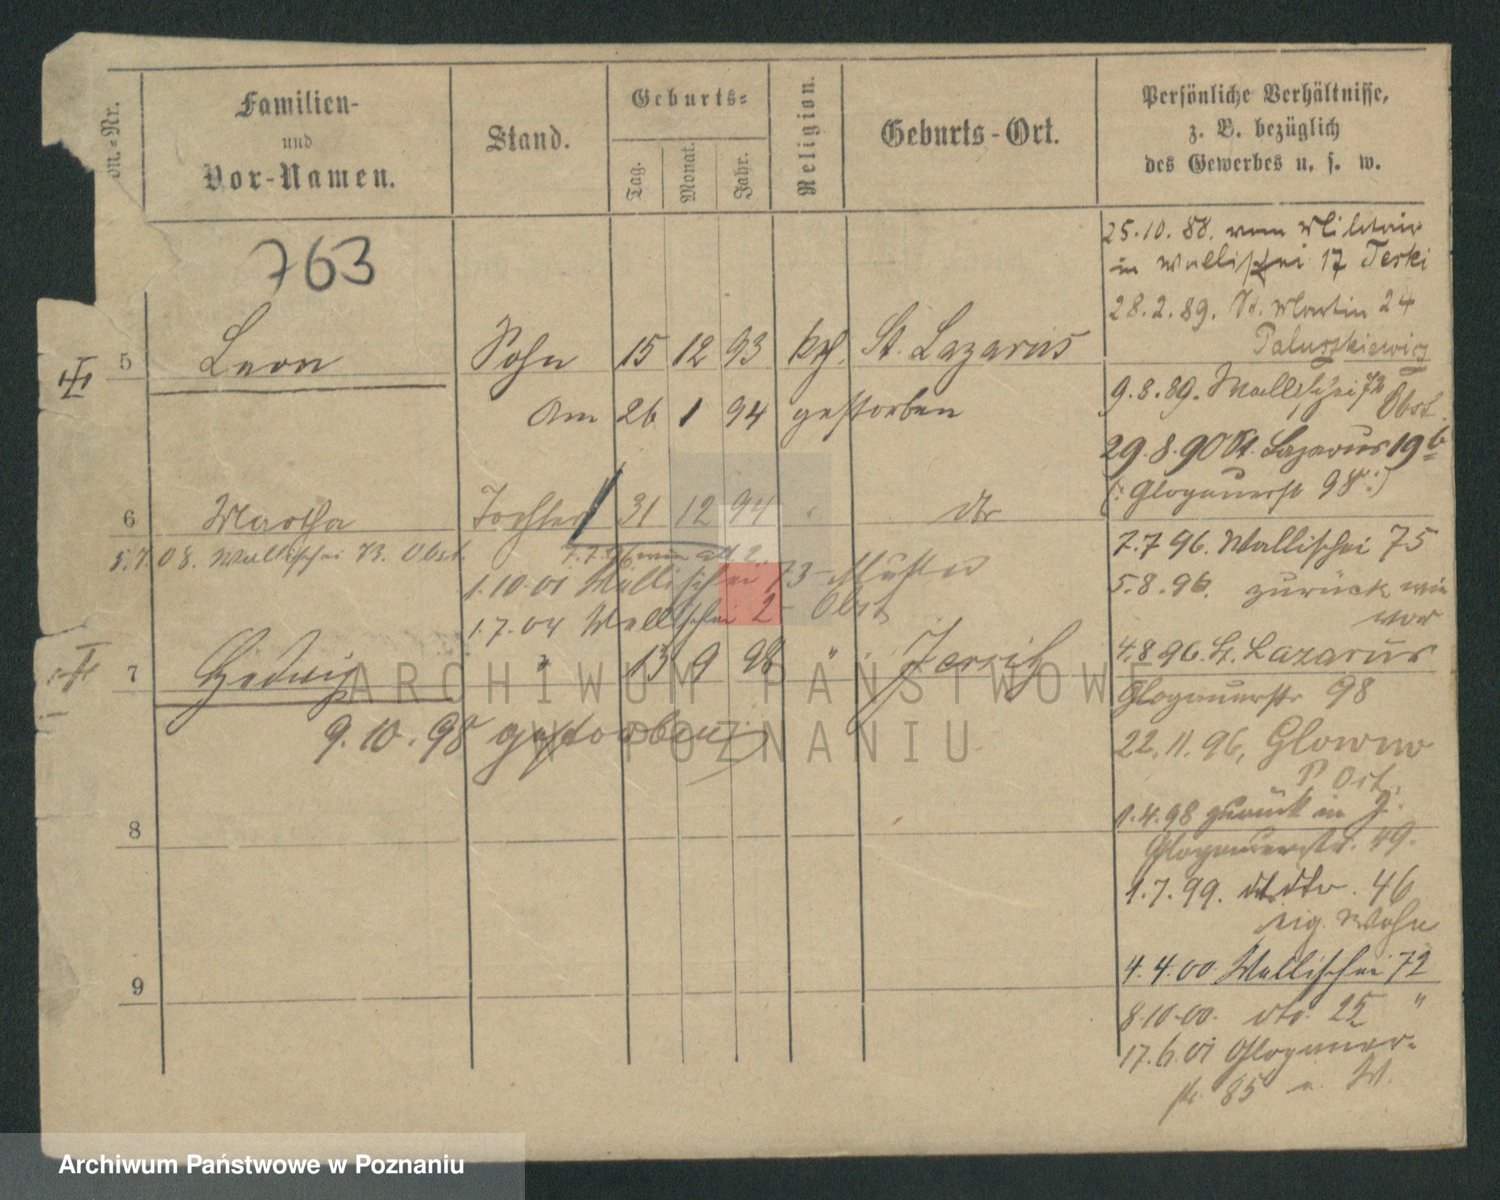 on.-Nr.
Familien-
und
Vor-Namen.
Stand.
Geburts-
Tag.
Monat.
Jahr.
Religion.
Geburts-Ort.
Persönliche Verhältnisse,
z. B. bezüglich
des Gewerbes u. s. w.
763
25.10.88. vom Militair
in Wallischei 17 Teski
28.2.89. St. Martin 24
Paluszkiewicz
5 Leon Sohn 15 12 93 kth. St. Lazarus
Am 26 1 94 gestorben
9.8.89. Wallischei 72
Obst.
29.8.90 St. Lazarus 19 b
(: Glogauerstr 98 :)
6 Martha Tochter 31 12 94 " dto
5.7.08. Wallischei 73. Obst.
7.7.96
1.10.01 Wallischei 73
1.7.04 Wallischei 2 - Obst
7.7 96. Wallischei 75
5.8.96. zurück wie
vor
7 Hedwig " 13 9 98 " Jersitz
9.10.98 gestorben
4.8.96. St. Lazarus
Glogauerstr 98
22.11.96, Glowno
P. Ost.
1.4.98 zurück in
8
Glogauerstr. 49.
1.7.99. dto. 46
eig. Wohn
4.4.00 Wallischei 72
9
8.10.00. dto. 25 "
17.6.01 Glogauer-
str. 85
ARCHIWUM PAŃSTWOWE
W POZNANIU
Archiwum Państwowe w Poznaniu